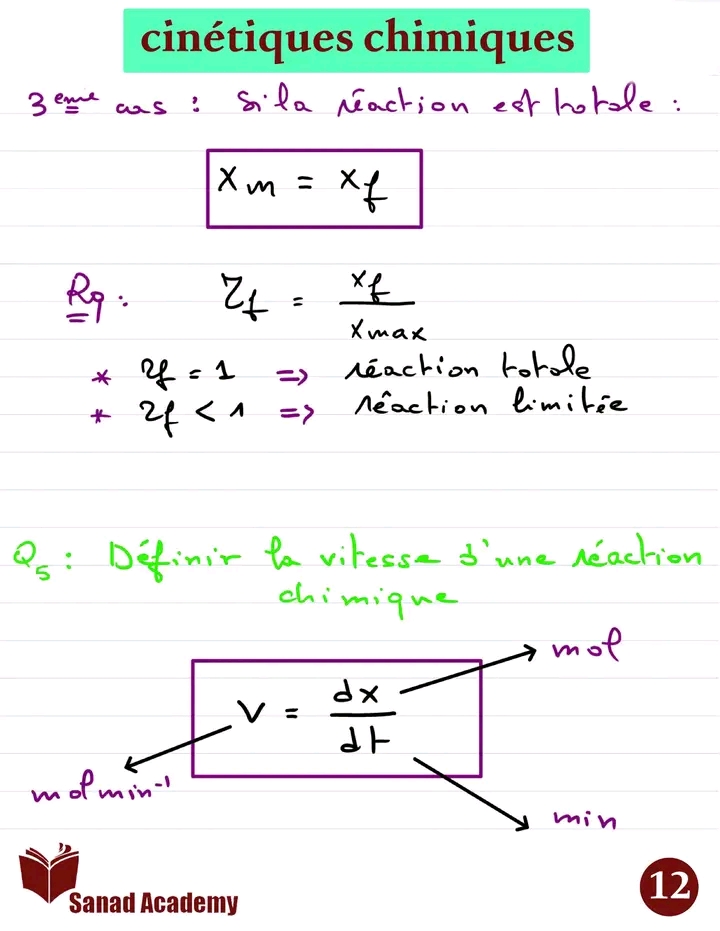 cinétiques chimiques
3 eme cas : Si la réaction est totale :
xm = xf
Rq : τf = xf / xmax
* τf = 1 => réaction totale
* τf < 1 => réaction limitée
Q5 : Définir la vitesse d'une réaction
chimique
mol
V = dx / dt
mol min-1
min
Sanad Academy
12